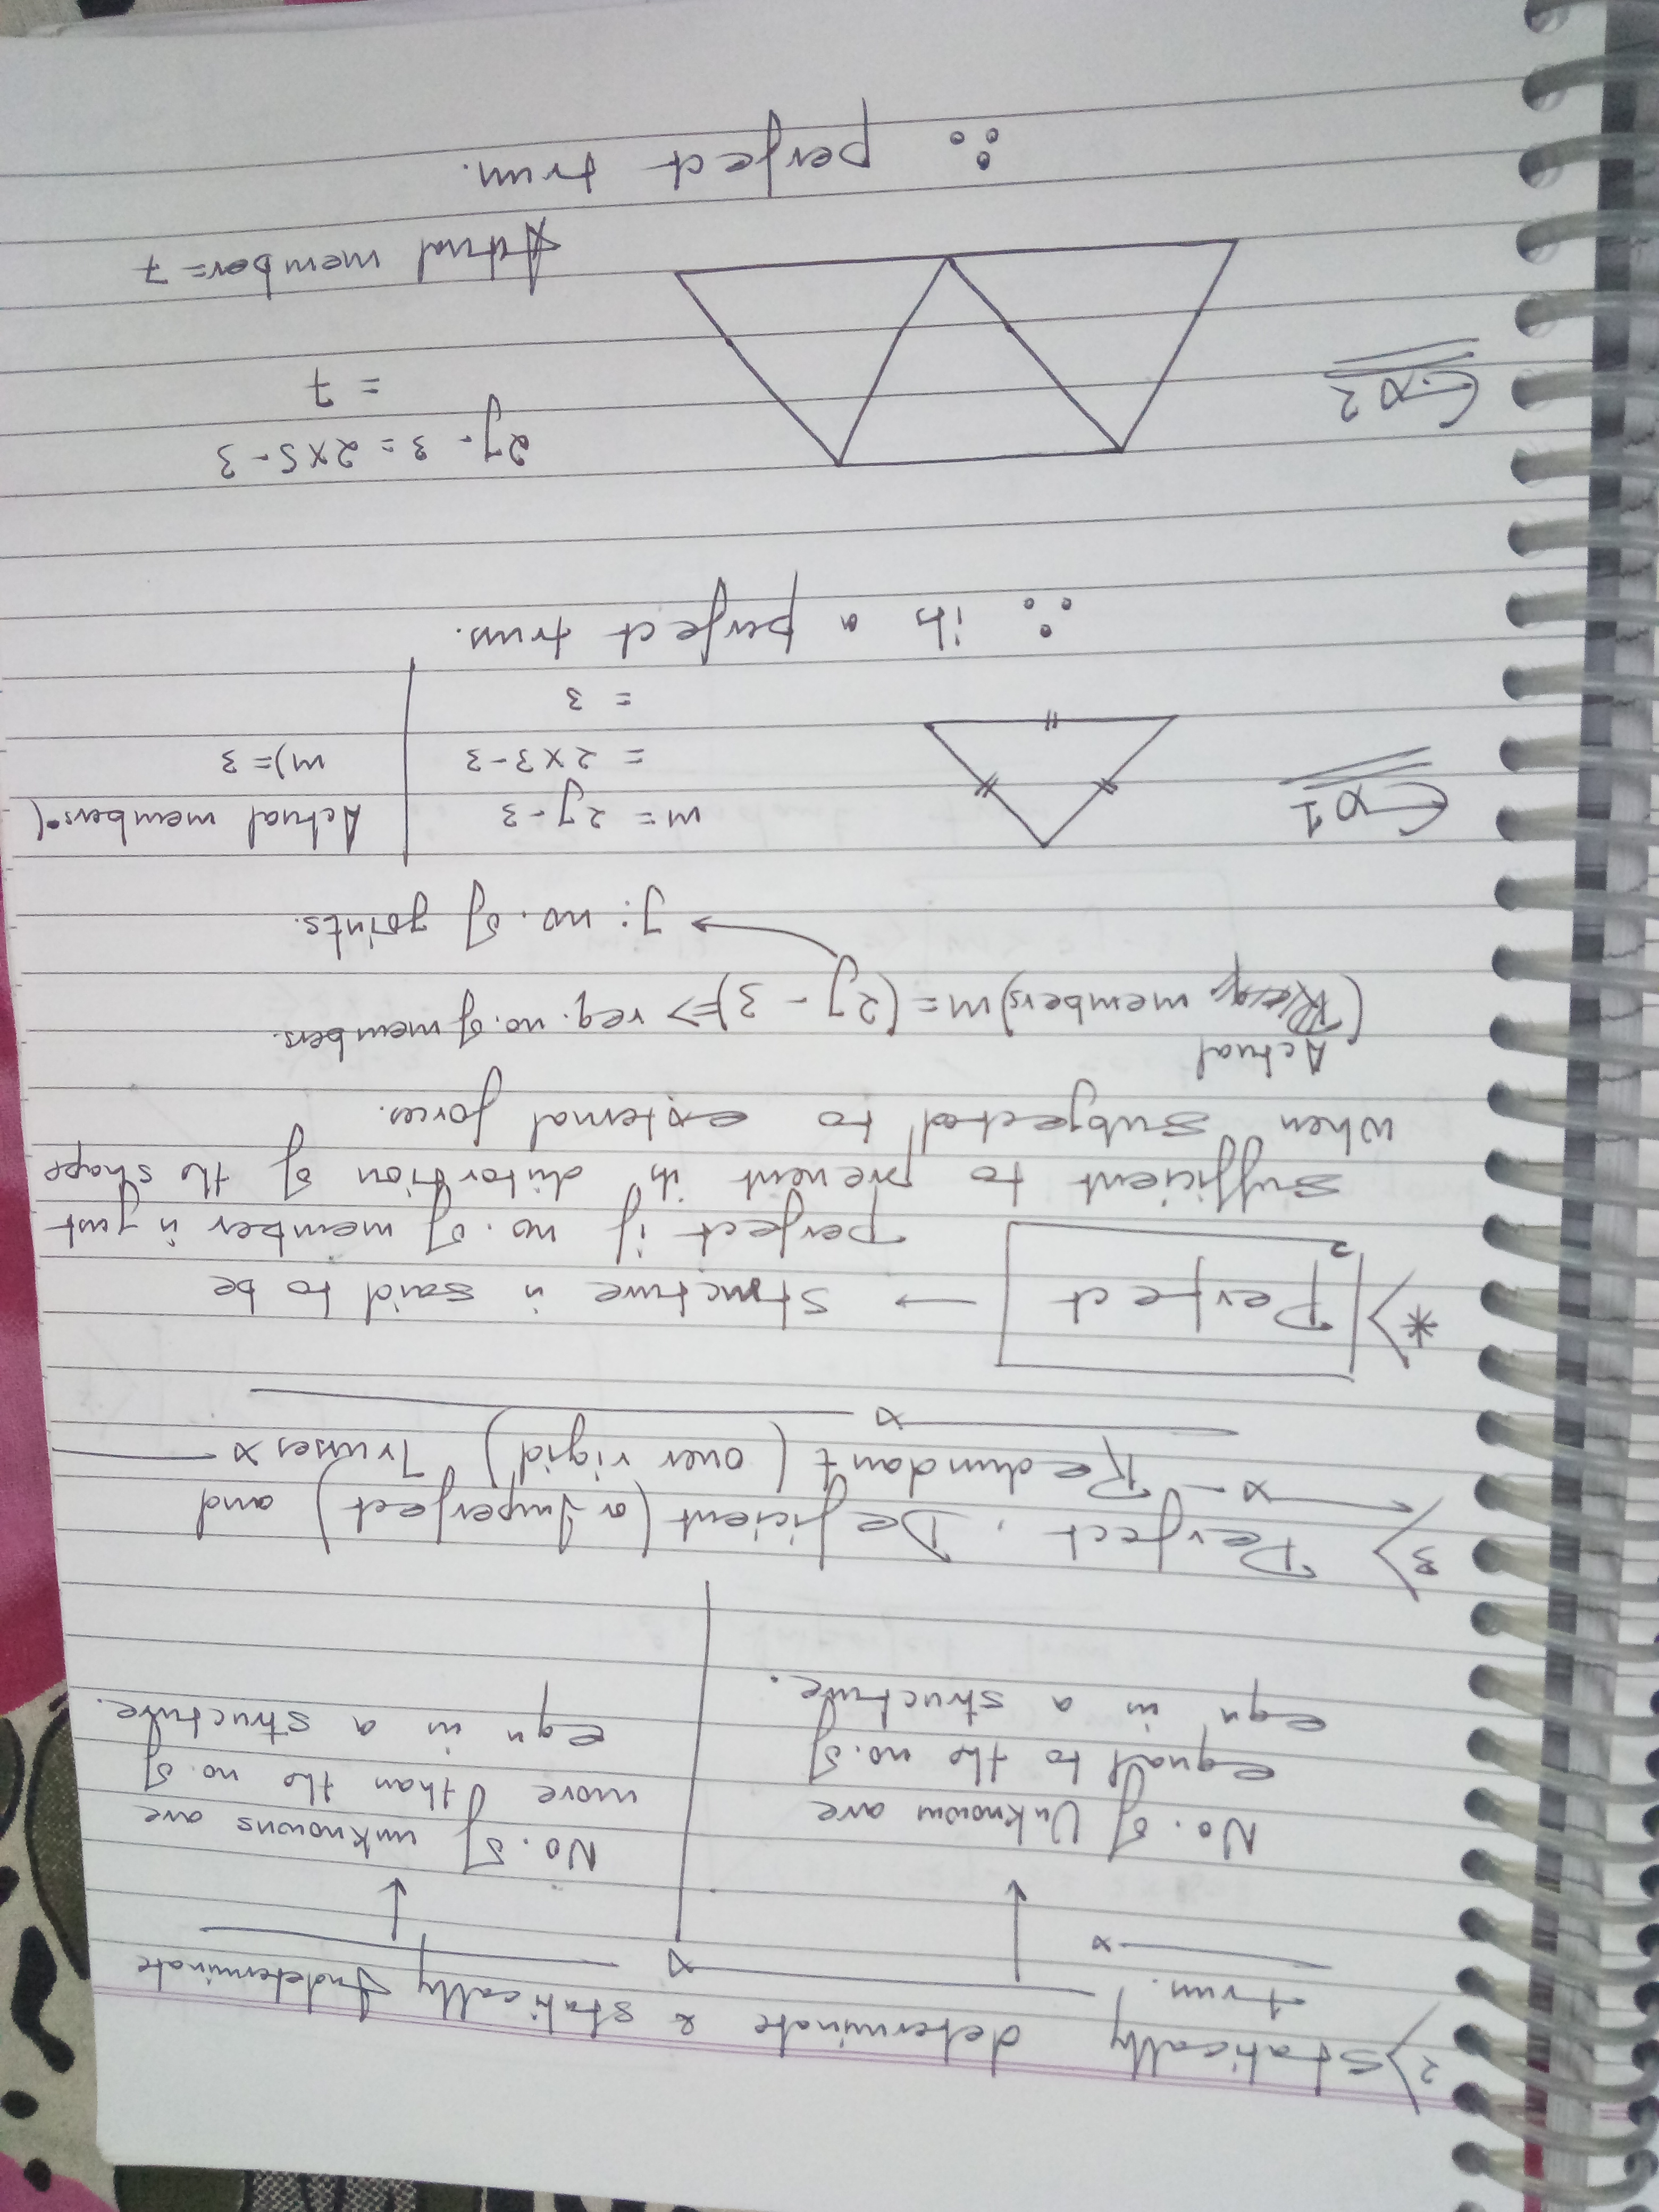 2) Statically determinate & statically Indeterminate
truss.
No. of Unknowns are
equal to the no. of
eqn in a structure.
No. of unknowns are
more than the no. of
eqn in a structure.
3) Perfect, Deficient (or Imperfect) and
Redundant (over rigid) Trusses
*) Perfect → Structure is said to be
perfect if no. of member is just
sufficient to prevent its distortion of the shape
when subjected to external forces.
Actual
(Req. members) m = (2j - 3) => req. no. of members.
j: no. of joints.
Ex 1
m = 2j - 3
= 2 x 3 - 3
= 3
Actual members (
m) = 3
∴ its a perfect truss.
Ex 2
2j - 3 = 2x5 - 3
= 7
Actual member = 7
∴ perfect truss.